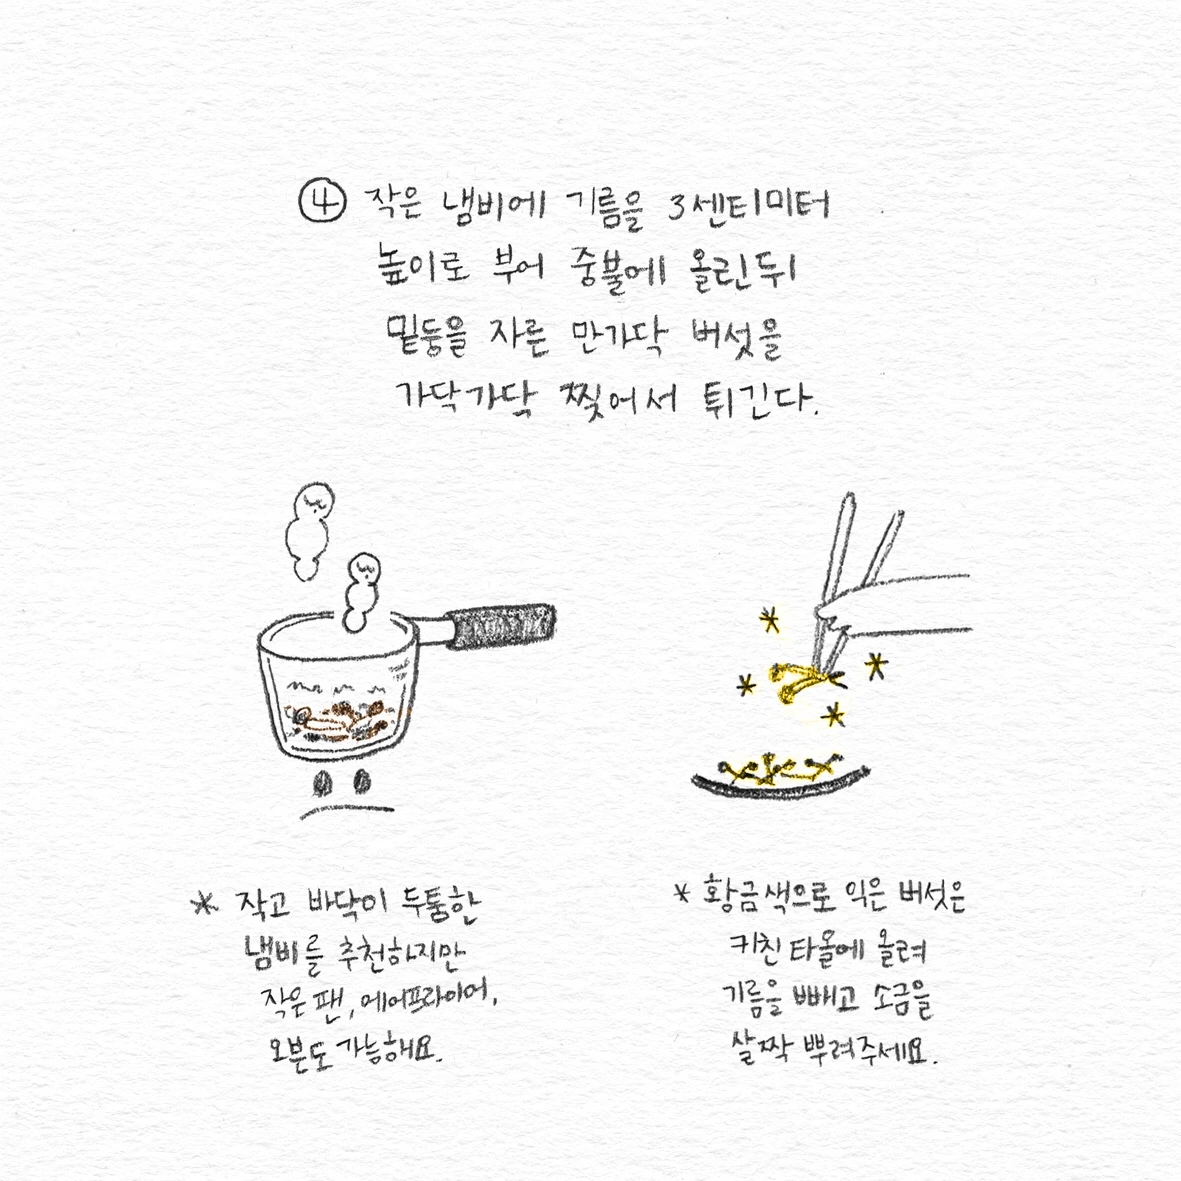 ④ 작은 냄비에 기름을 3센티미터
높이로 부어 중불에 올린뒤
밑둥을 자른 만가닥 버섯을
가닥가닥 찢어서 튀긴다.
* 작고 바닥이 두툼한
냄비를 추천하지만
작은팬, 에어프라이어,
오븐도 가능해요.
* 황금색으로 익은 버섯은
키친 타올에 올려
기름을 빼고 소금을
살짝 뿌려주세요.